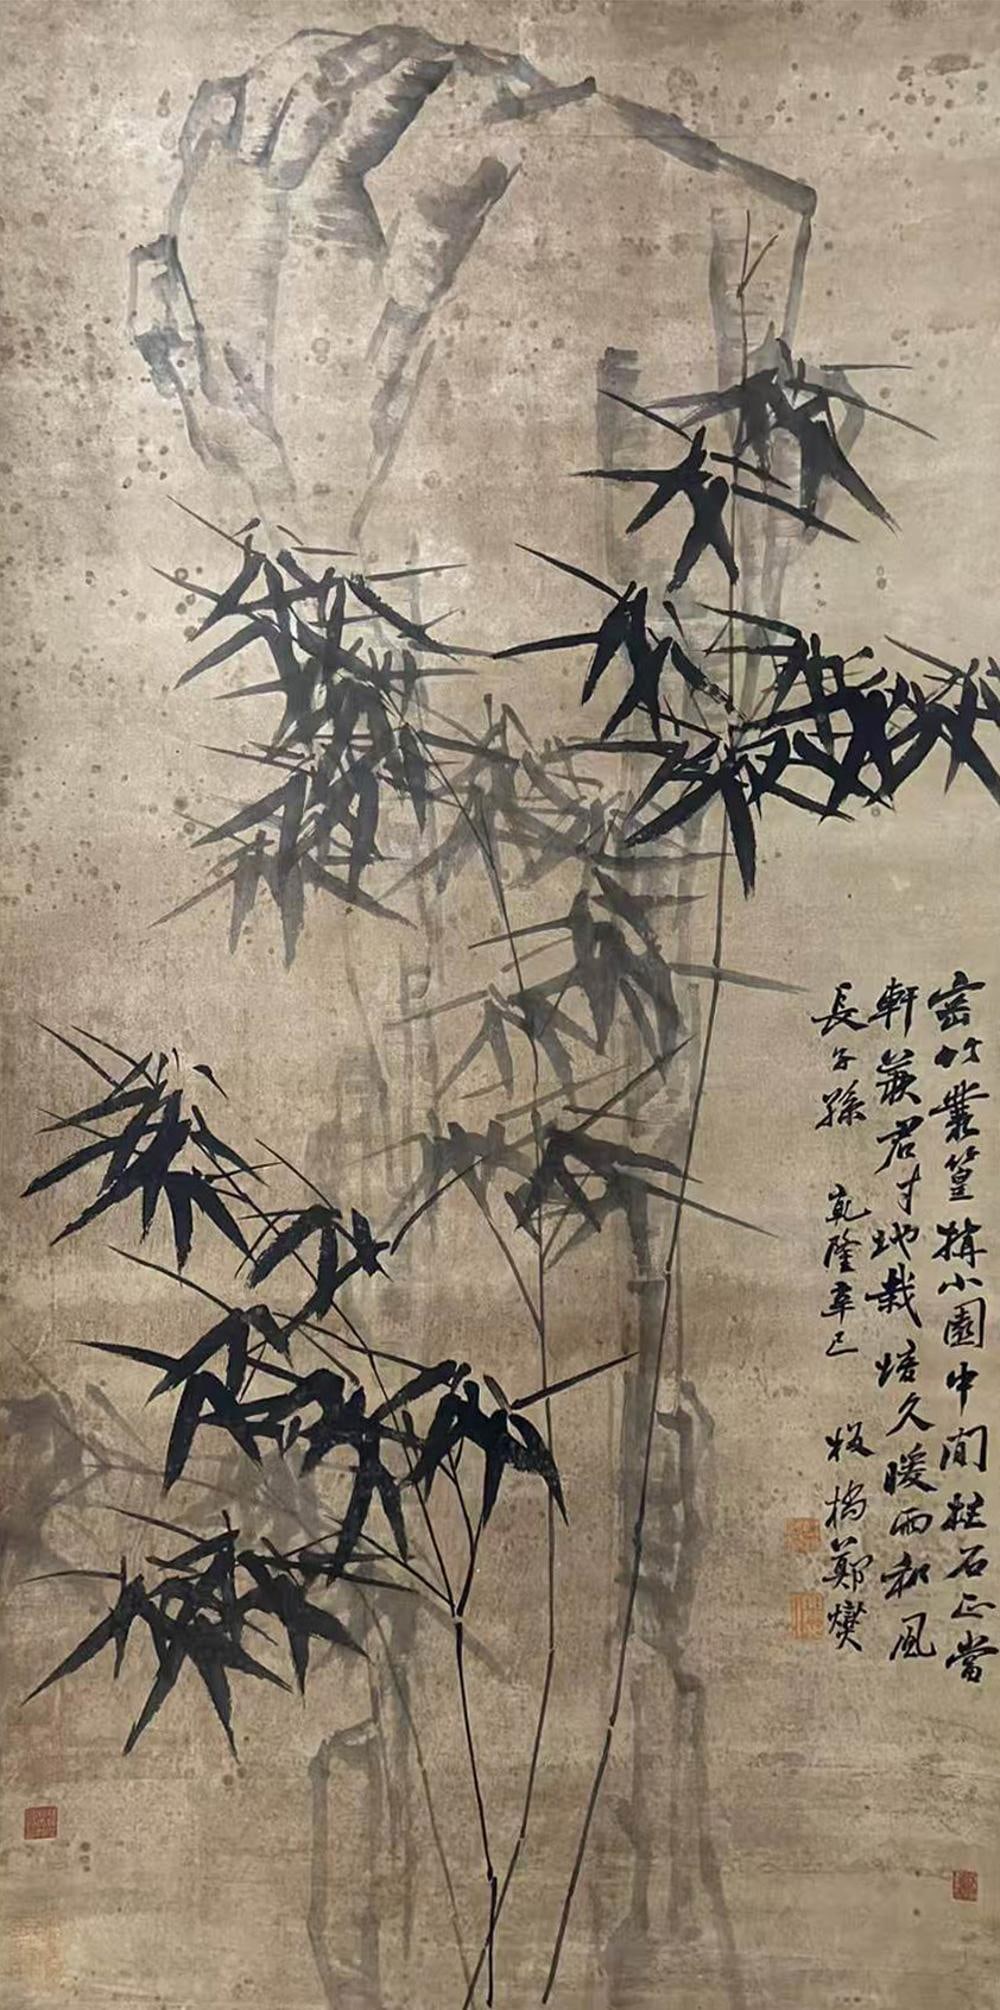 密竹叢篁擁小園中間拄石正當
軒蒙君寸地栽培久暖雨和風
長子孫　乾隆辛巳　板橋鄭燮